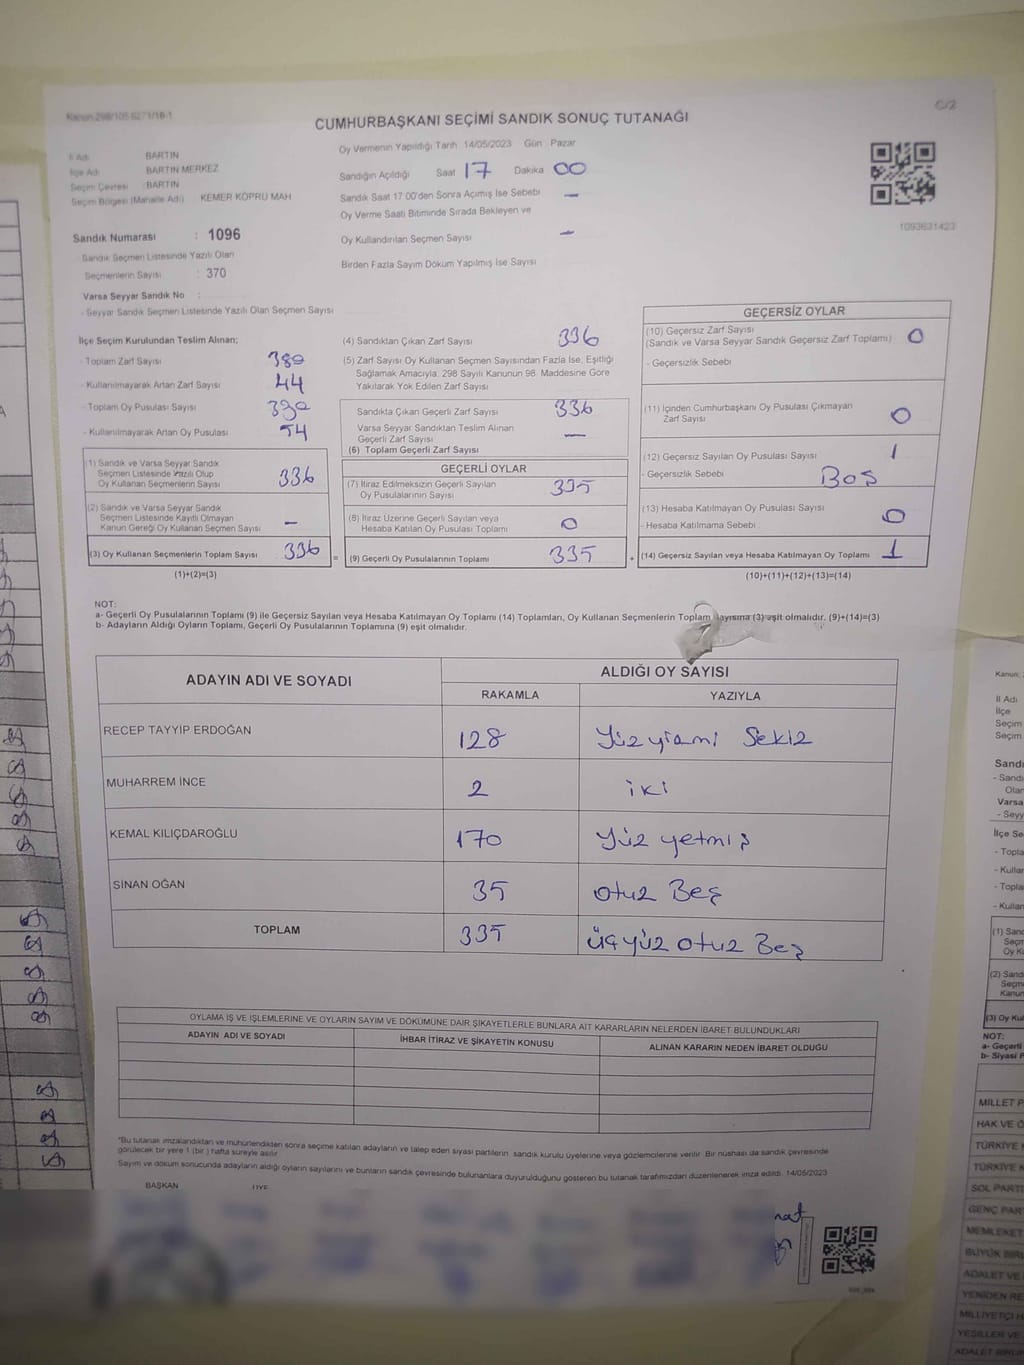 C/2
CUMHURBAŞKANI SEÇİMİ SANDIK SONUÇ TUTANAĞI
İl Adı BARTIN
İlçe Adı BARTIN MERKEZ
Seçim Çevresi : BARTIN
Seçim Bölgesi (Mahalle Adı) KEMER KÖPRÜ MAH
Sandık Numarası : 1096
- Sandık Seçmen Listesinde Yazılı Olan
Seçmenlerin Sayısı : 370
Varsa Seyyar Sandık No :
- Seyyar Sandık Seçmen Listesinde Yazılı Olan Seçmen Sayısı
Oy Vermenin Yapıldığı Tarih 14/05/2023 Gün Pazar
Sandığın Açıldığı Saat 17 Dakika 00
Sandık Saat 17 00'den Sonra Açımış İse Sebebi —
Oy Verme Saati Bitiminde Sırada Bekleyen ve
Oy Kullandırılan Seçmen Sayısı —
Birden Fazla Sayım Döküm Yapılmış İse Sayısı
1093631423
İlçe Seçim Kurulundan Teslim Alınan;
- Toplam Zarf Sayısı 380
- Kullanılmayarak Artan Zarf Sayısı 44
- Toplam Oy Pusulası Sayısı 390
- Kullanılmayarak Artan Oy Pusulası 54
(1) Sandık ve Varsa Seyyar Sandık
Seçmen Listesinde Yazılı Olup
Oy Kullanan Seçmenlerin Sayısı 336
(2) Sandık ve Varsa Seyyar Sandık
Seçmen Listesinde Kayıtlı Olmayan
Kanun Gereği Oy Kullanan Seçmen Sayısı —
(3) Oy Kullanan Seçmenlerin Toplam Sayısı 336
(1)+(2)=(3)
(4) Sandıktan Çıkan Zarf Sayısı 336
(5) Zarf Sayısı Oy Kullanan Seçmen Sayısından Fazla İse, Eşitliği
Sağlamak Amacıyla, 298 Sayılı Kanunun 98. Maddesine Göre
Yakılarak Yok Edilen Zarf Sayısı
Sandıkta Çıkan Geçerli Zarf Sayısı 336
Varsa Seyyar Sandıktan Teslim Alınan
Geçerli Zarf Sayısı —
(6) Toplam Geçerli Zarf Sayısı
GEÇERLİ OYLAR
(7) İtiraz Edilmeksizin Geçerli Sayılan
Oy Pusulalarının Sayısı 335
(8) İtiraz Üzerine Geçerli Sayılan veya
Hesaba Katılan Oy Pusulası Toplamı 0
=
(9) Geçerli Oy Pusulalarının Toplamı 335
GEÇERSİZ OYLAR
(10) Geçersiz Zarf Sayısı
(Sandık ve Varsa Seyyar Sandık Geçersiz Zarf Toplamı) 0
- Geçersizlik Sebebi
(11) İçinden Cumhurbaşkanı Oy Pusulası Çıkmayan
Zarf Sayısı 0
(12) Geçersiz Sayılan Oy Pusulası Sayısı 1
- Geçersizlik Sebebi BOŞ
(13) Hesaba Katılmayan Oy Pusulası Sayısı 0
- Hesaba Katılmama Sebebi
+
(14) Geçersiz Sayılan veya Hesaba Katılmayan Oy Toplamı 1
(10)+(11)+(12)+(13)=(14)
NOT:
a- Geçerli Oy Pusulalarının Toplamı (9) ile Geçersiz Sayılan veya Hesaba Katılmayan Oy Toplamı (14) Toplamları, Oy Kullanan Seçmenlerin Toplam Sayısına (3) eşit olmalıdır. (9)+(14)=(3)
b- Adayların Aldığı Oyların Toplamı, Geçerli Oy Pusulalarının Toplamına (9) eşit olmalıdır.
ADAYIN ADI VE SOYADI
ALDIĞI OY SAYISI
RAKAMLA YAZIYLA
RECEP TAYYİP ERDOĞAN 128 Yüzyirmi Sekiz
MUHARREM İNCE 2 iki
KEMAL KILIÇDAROĞLU 170 Yüz yetmiş
SİNAN OĞAN 35 otuz Beş
TOPLAM 335 üçyüz otuz Beş
OYLAMA İŞ VE İŞLEMLERİNE VE OYLARIN SAYIM VE DÖKÜMÜNE DAİR ŞİKAYETLERLE BUNLARA AİT KARARLARIN NELERDEN İBARET BULUNDUKLARI
ADAYIN ADI VE SOYADI İHBAR İTİRAZ VE ŞİKAYETİN KONUSU ALINAN KARARIN NEDEN İBARET OLDUĞU
*Bu tutanak imzalandıktan ve mühürlendikten sonra seçime katılan adayların ve talep eden siyasi partilerin sandık kurulu üyelerine veya gözlemcilerine verilir. Bir nüshası da sandık çevresinde
görülecek bir yere 1 (bir ) hafta süreyle asılır
Sayım ve döküm sonucunda adayların aldığı oyların sayılarını ve bunların sandık çevresinde bulunanlara duyurulduğunu gösteren bu tutanak tarafımızdan düzenlenerek imza edildi. 14/05/2023
BAŞKAN ÜYE
Kanun:
İl Adı
İlçe
Seçim
Seçim
Sandı
- Sandı
Olar
Varsa
- Seyy
İlçe Se
- Topla
- Kullar
- Topla
- Kullar
(1) Sand
Seçm
Oy Ku
(2) Sand
Seçme
Kanun
(3) Oy Kul
NOT:
a- Geçerli
b- Siyasi P
MİLLET P
HAK VE Ö
TÜRKİYE K
TÜRKİYE K
SOL PARTİ
GENÇ PAR
MEMLEKET
BÜYÜK BİRL
ADALET VE
YENİDEN RE
MİLLİYETÇİ H
YEŞİLLER VE
ADALET BİRLİK